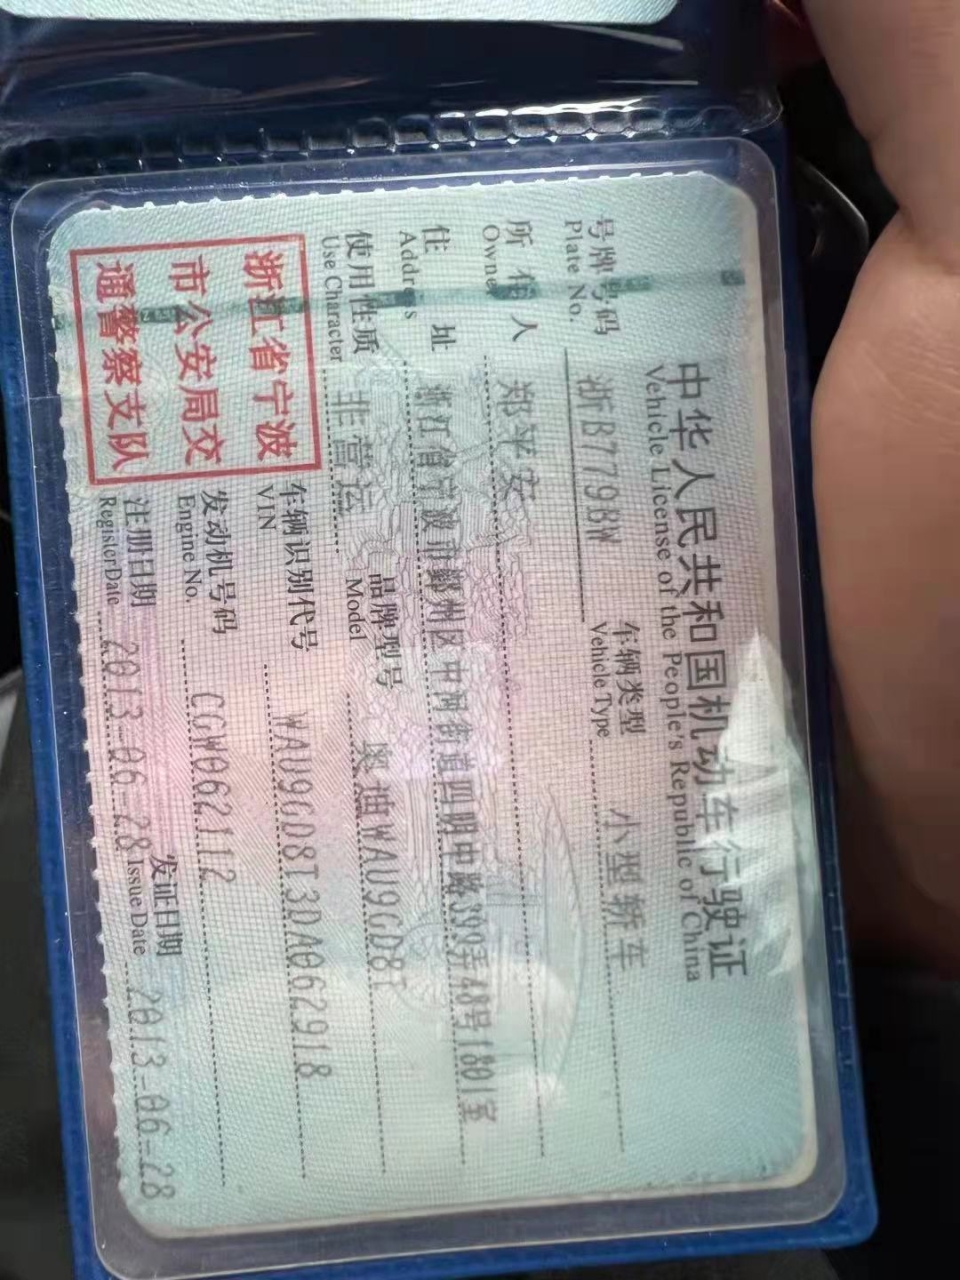 中华人民共和国机动车行驶证
Vehicle License of the People's Republic of China
号牌号码 浙B779BW 车辆类型 小型轿车
Plate No. Vehicle Type
所有人 郑平安
Owner
住址 浙江省宁波市鄞州区中河街道四明中路999弄48号1801室
Address
使用性质 非营运 品牌型号 奥迪WAU9GD8T
Use Character Model
浙江省宁波
市公安局交
通警察支队
车辆识别代号 WAU9GD8T3DA062918
VIN
发动机号码 CGW062112
Engine No.
注册日期 2013-06-28 发证日期 2013-06-28
Register Date Issue Date